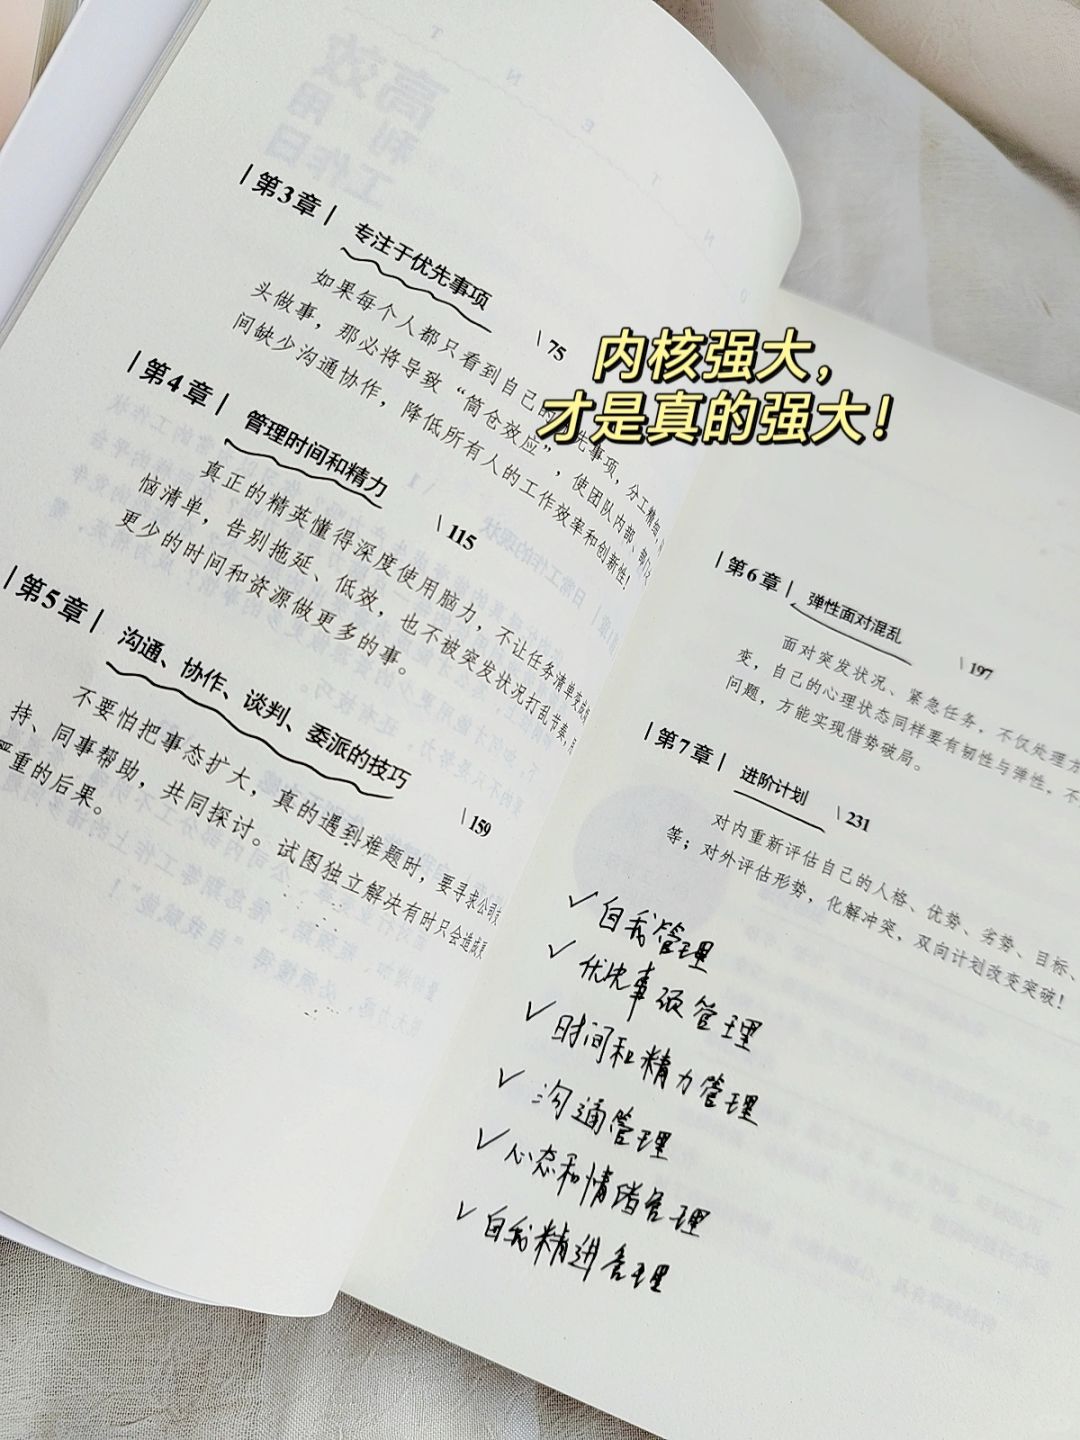 第3章
专注于优先事项
\75
如果每个人都只看到自己的 先事项，分工精细，
头做事，那必将导致“筒仓效应”，使团队内部、部门之
间缺少沟通协作，降低所有人的工作效率和创新性！
第4章
管理时间和精力
\115
真正的精英懂得深度使用脑力，不让任务清单变成
恼清单，告别拖延、低效，也不被突发状况打乱节奏，用
更少的时间和资源做更多的事。
第5章
沟通、协作、谈判、委派的技巧
\159
不要怕把事态扩大，真的遇到难题时，要寻求公司
持、同事帮助，共同探讨。试图独立解决有时只会造成更
严重的后果。
内核强大，
才是真的强大！
第6章
弹性面对混乱
\197
面对突发状况、紧急任务，不仅处理方
变，自己的心理状态同样要有韧性与弹性，不
问题，方能实现借势破局。
第7章
进阶计划
\231
对内重新评估自己的人格、优势、劣势、目标、
等；对外评估形势，化解冲突，双向计划改变突破！
✓自我管理
✓优先事项管理
✓时间和精力管理
✓沟通管理
✓心态和情绪管理
✓自我精进管理